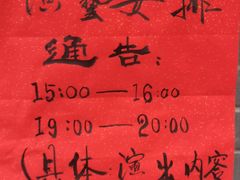 演艺安排
通告：
15:00—16:00
19:00—20:00
(具体演出内容